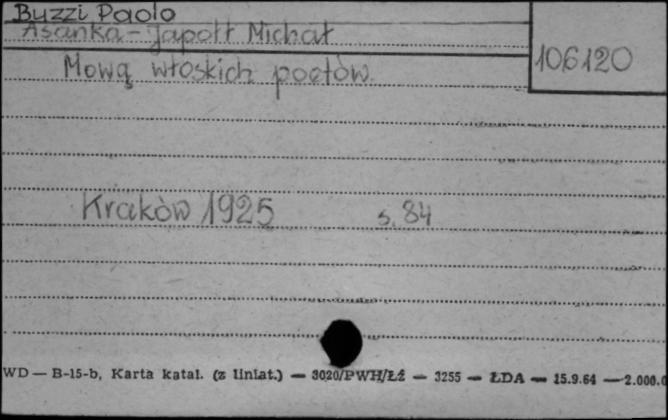 Buzzi Paolo
Asanka-Japołł Michał
106120
Mową włoskich poetów
Kraków 1925 s. 84
WD — B-15-b, Karta katal. (z liniat.) — 3020/PWH/ŁŹ — 3255 — ŁDA — 15.9.64 — 2.000.0